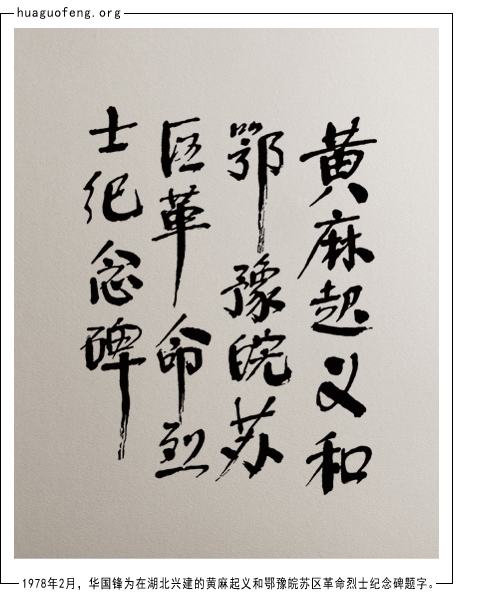 huaguofeng.org
黄麻起义和
鄂豫皖苏
区革命烈
士纪念碑
1978年2月，华国锋为在湖北兴建的黄麻起义和鄂豫皖苏区革命烈士纪念碑题字。